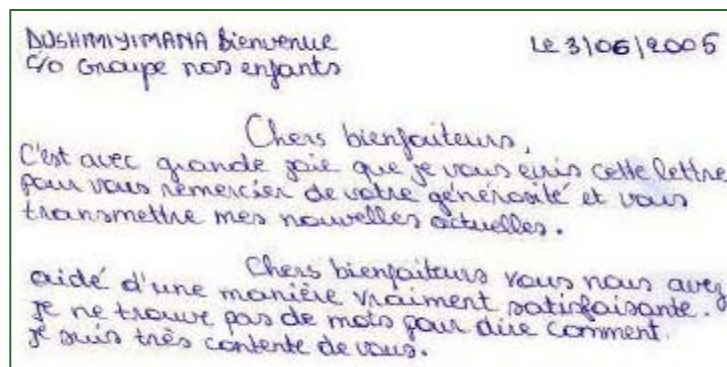 DUSHIMIYIMANA Bienvenue Le 3/06/2005
C/o Groupe nos enfants
Chers bienfaiteurs,
C'est avec grande joie que je vous écris cette lettre
pour vous remercier de votre générosité et vous
transmettre mes nouvelles actuelles.
Chers bienfaiteurs vous nous avez
aidé d'une manière vraiment satisfaisante.
Je ne trouve pas de mots pour dire comment
je suis très contente de vous.